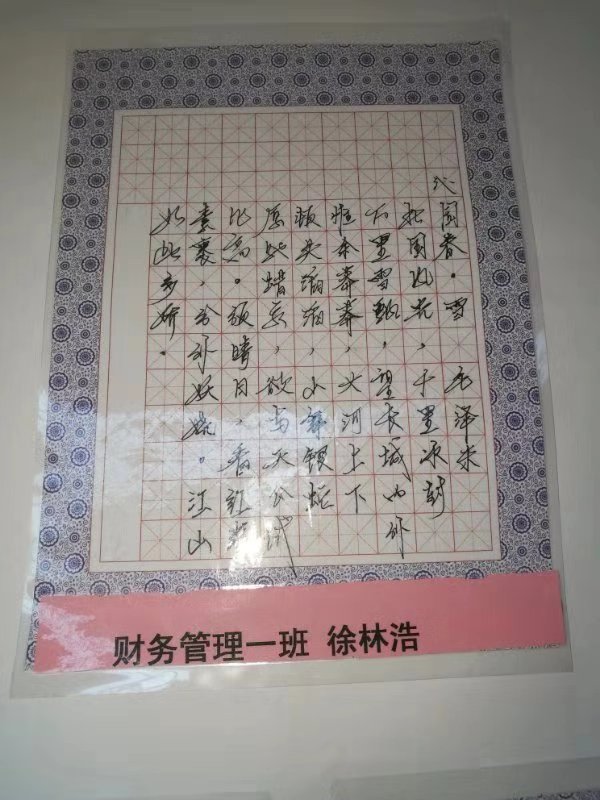 沁园春·雪 毛泽东
北国风光，千里冰封
万里雪飘 望长城内外
惟余莽莽，大河上下
顿失滔滔，山舞银蛇
原驰蜡象，欲与天公试
比高。须晴日，看红装
素裹，分外妖娆。江山
如此多娇。
财务管理一班 徐林浩